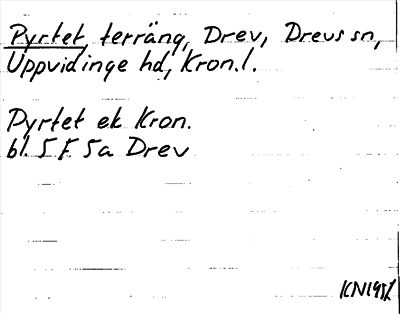 Pyrtet, terräng, Drev, Drevs sn,
Uppvidinge hd, Kron.l.
Pyrtet ek Kron.
bl. 5 F 5a Drev